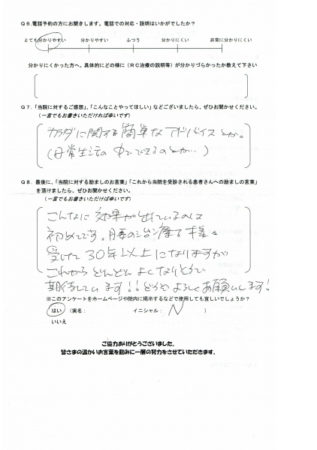 Q6.電話予約の方にお聞きします。電話での対応・説明はいかがでしたか?
とても分かりやすい 分かりやすい ふつう 分かりにくい 非常に分かりにくい
分かりにくかった方へ、具体的にどの様に(RC治療の説明等)が分かりづらかったか教えて下さい
Q7.「当院に対するご感想」、「こんなことやってほしい」などございましたら、ぜひお聞かせください。
(一言でもお書きいただければ幸いです)
カラダに関する簡単なアドバイスとか。
(日常生活の中でできるのとか…)
Q8.最後に、「当院に対する励ましのお言葉」「これから当院を受診される患者さんへの励ましの言葉」
を頂けましたら、ぜひお聞かせください。
(一言でもお書きいただければ幸いです)
こんなに効果が出ているのは
初めてです。腰の治療で
受けた30年以上になりますが
これからどんどんよくなりそうで
期待しています!!どうぞよろしくお願いします!
※このアンケートをホームページや院内に掲示するなどで使用しても宜しいでしょうか?
はい (実名: イニシャル: N )
いいえ
ご協力ありがとうございました。
皆さまの温かいお言葉を励みに一層の努力をさせていただきます。